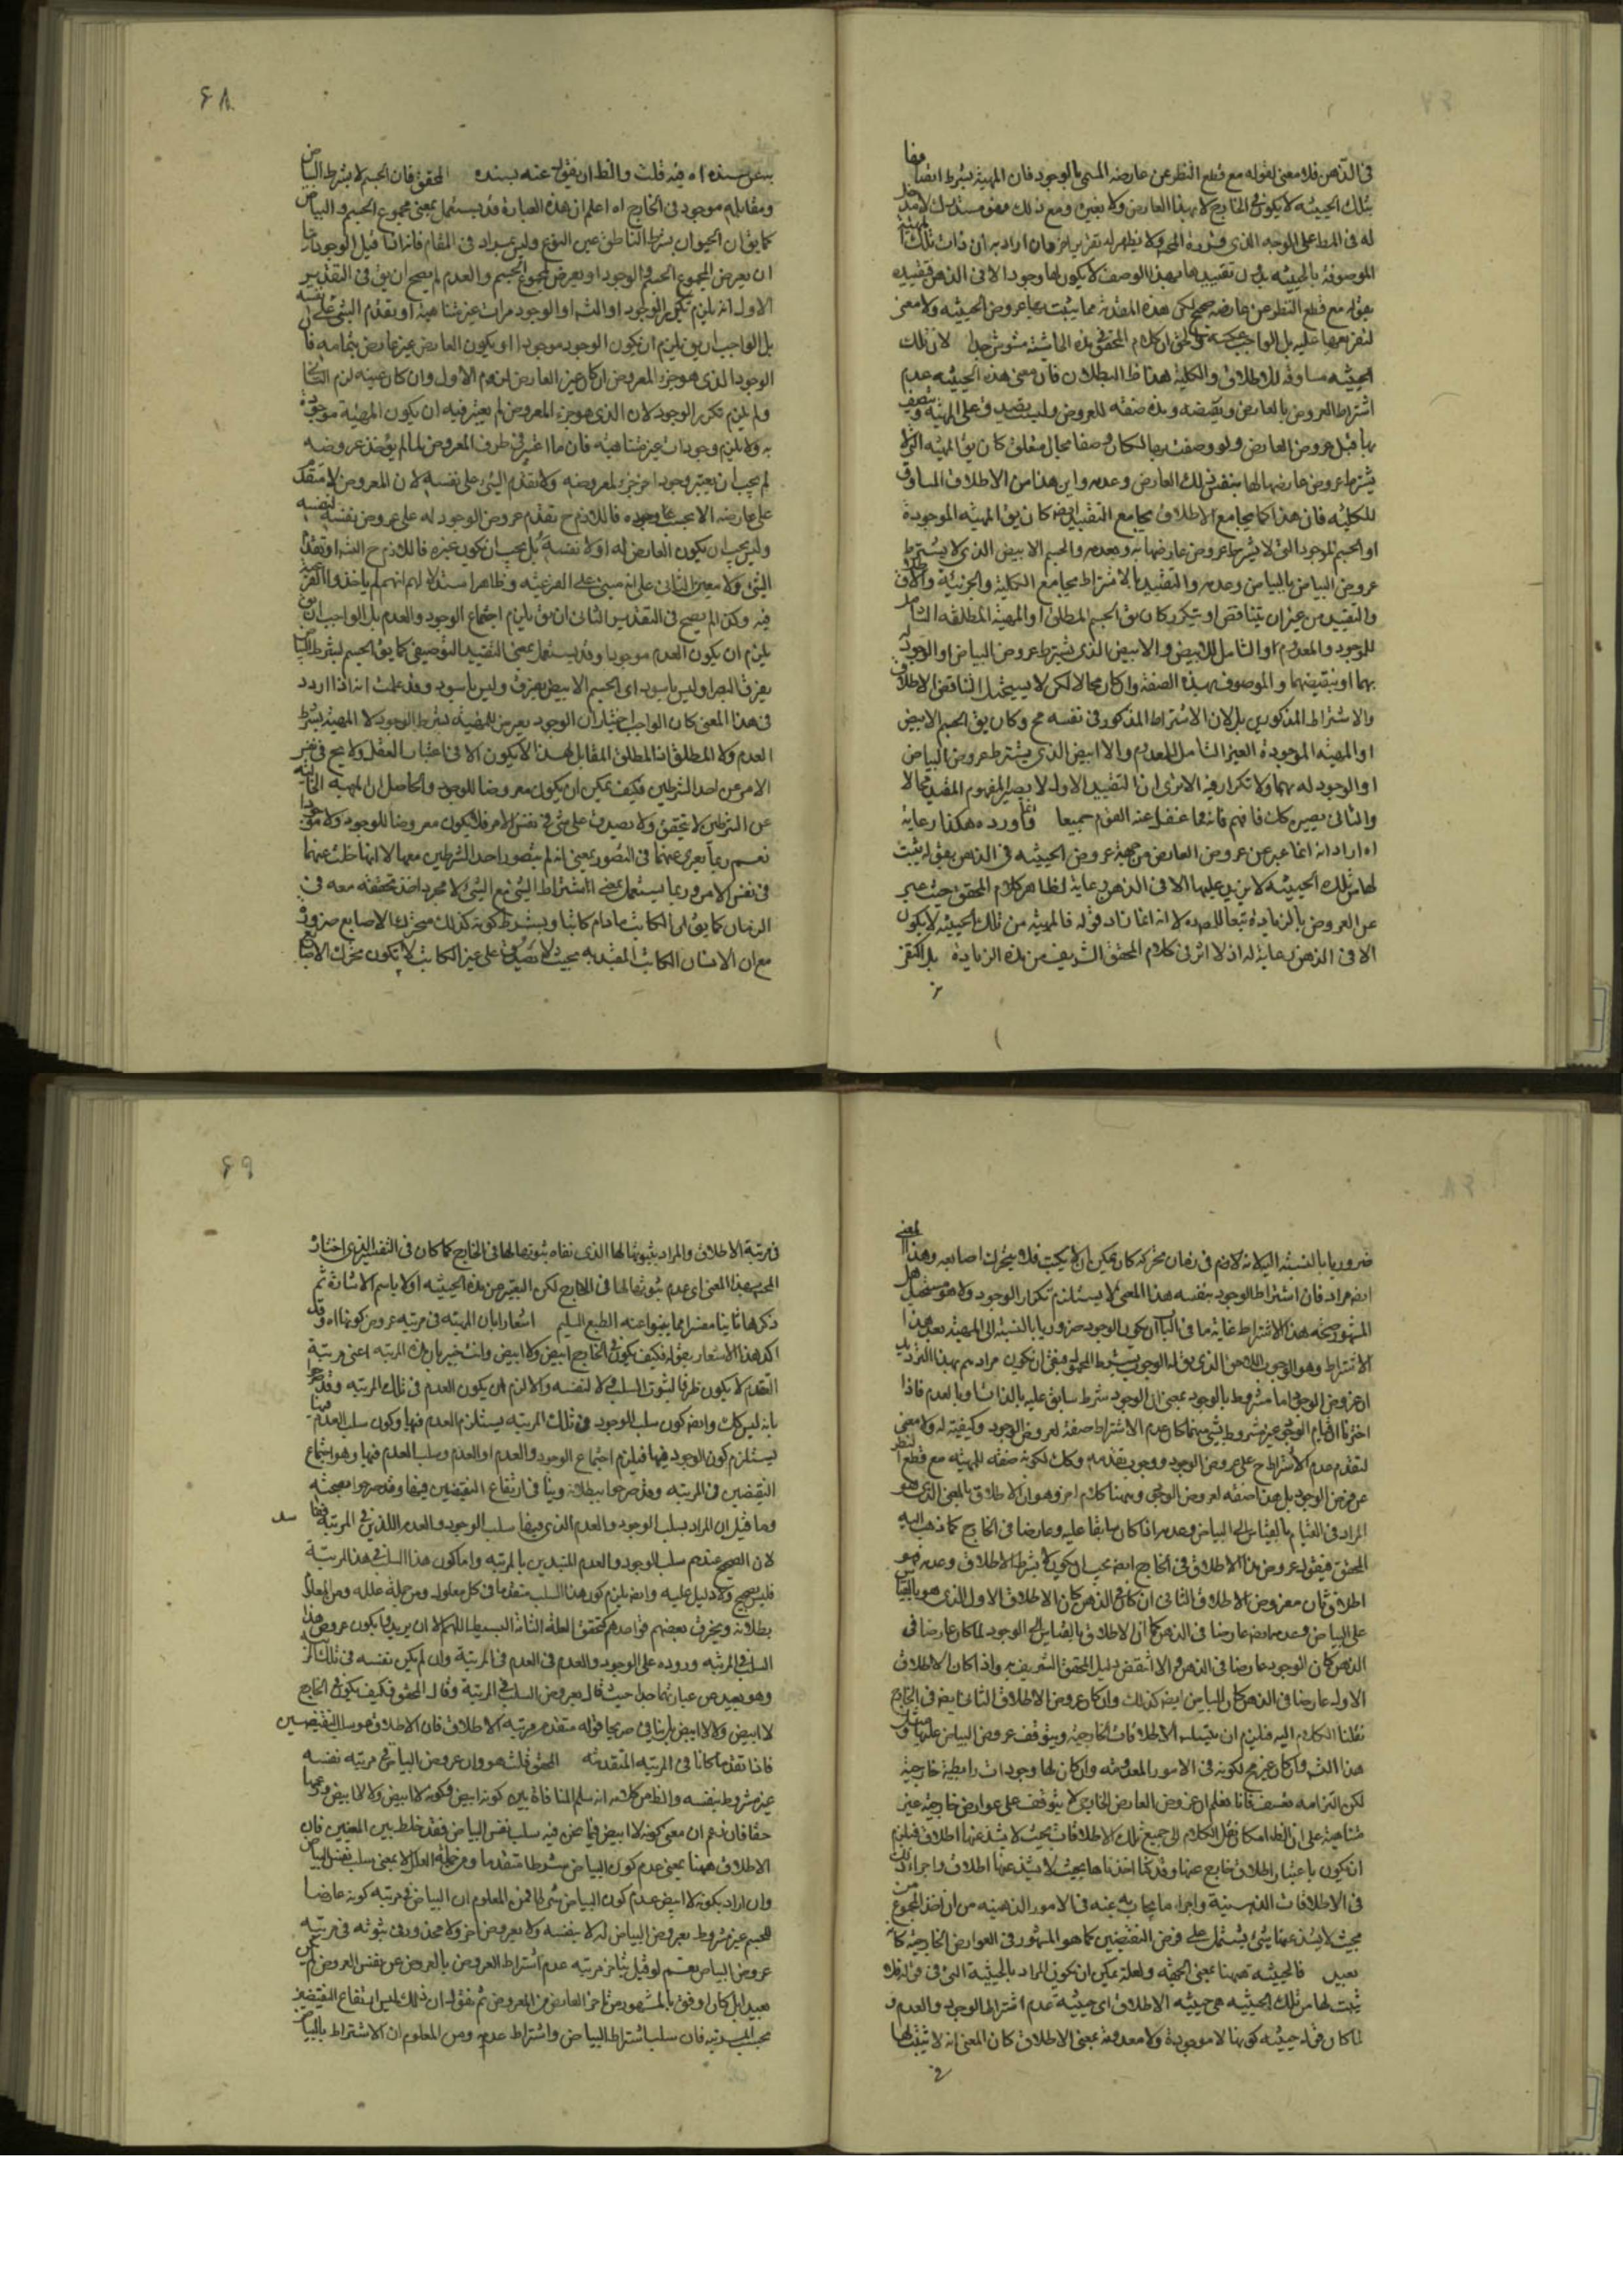 في الذهن فلا معنى لقوله مع قطع النظر عن عارضه المسمى بالوجود فان المهية بشرط
بتلك الحيثية لا يكون في الخارج لا بهذا العارض ولا بغيره ومع ذلك فهو مستدرك لا
الموصوفة بالحيثية بدون تقييدها بهذا الوصف لا يكون لها وجود الا في الذهن فتقييده
بقوله مع قطع النظر عن عارضه صحيح لكن هذه المقدمة مما يثبت بها عروض الحيثية ولا معنى
الحيثية مساوقة للاطلاق والكلية هذا ظ البطلان فان معنى هذه الحيثية عدم
اشتراط العروض بالعارض ونقيضه وهذه صفة للعروض وليست
بها قبل عروض العارض ولو وصفت بها لكان وصفا بحال متعلق كان يق المهية التي لا
يشترط عروض عارضها لها بنفس ذلك العارض وعدمه واين هذا من الاطلاق المساوق
للكلية فان هذا كما يجامع الاطلاق يجامع التقييد ايضا كان يق المهية الموجودة
او الجسم الموجود التي لا يشترط عروض عارضها به وبعدمه والجسم الابيض الذي لا يشترط
عروض البياض بالبياض وعدمه والتقييد بالاشتراط يجامع الكلية والجزئية والاطلاق
والتقييد من غير ان يتناقض او يتكرر كان يق الجسم المطلق او المهية المطلقة الشامل
للموجود والمعدوم او الشامل للابيض والا ابيض الذي يشترط عروض البياض او الوجود له
بهما او بنقيضهما والموصوف بهذه الصفة وان كان محالا لكن لا يستحيل لتناقض الاطلاق
والاشتراط المذكورين بل لان الاشتراط المذكور في نفسه مح وكان يق الجسم الابيض
او المهية الموجودة الغير الشامل للمعدوم والا ابيض الذي يشترط عروض البياض
او الوجود له بهما ولا تكرار فيه الا ترى ان التقييد الاول لا يصير المفهوم المقيد محالا
والثاني يصيره كك فافهم فانه مما غفل عنه القوم جميعا فاورده هكذا رعاية
اه اراد انه انما عبر عن عروض العارض من جهة عروض الحيثية في الذهن بقوله يثبت
لها من تلك الحيثية لا يزيد عليها الا في الذهن رعاية لظاهر كلام المحقق حيث عبر
عن العروض بالزيادة تبعا للصدر لا انه انما زاد قوله فالمهية من تلك الحيثية لا يكون
الا في الذهن رعاية له اذ لا اثر في كلام المحقق الشريف من هذه الزيادة
٦٨
المحقق فان الجسم لا بشرط البياض
ومقابله موجود في الخارج اه اعلم ان هذه العبارة قد يستعمل بمعنى مجموع الجسم والبياض
كما يق ان الحيوان بشرط الناطق عين النوع وليس بمراد في المقام فانه اذا قيل الوجود اما
ان يعرض لمجموع الجسم والوجود او يعرض لمجموع الجسم والعدم لم يصح ان يق في التقدير
الاول انه يلزم تكرر الوجود او التس او الوجود مرات غير متناهية او تقدم الشيء على نفسه
بل الواجب ان يق يلزم ان يكون الوجود موجودا او يكون العارض غير عارض بتمامه
الوجود الذي هو جزء المعروض ان كان غير العارض لزم الاول وان كان عينه لزم
ولم يلزم تكرر الوجود لان الذي هو جزء المعروض لم يعتبر فيه ان يكون المهية موجودة
به ولا يلزم وجودات غير متناهية فان ما اعتبر في طرف المعروض لما لم يؤخذ عروضه
لم يجب ان يعتبر وجود اخر جزء لمعروضه ولا تقدم الشيء على نفسه لان المعروض لا
على عارضه الا بحسب وجوده فاللازم ح تقدم عروض الوجود له على عروض نفسه لنفسه
وليس يجب ان يكون العارض له اولا نفسه بل يجب ان يكون غيره فاللازم ح التس او تقدم
فيه وكذا لم يصح في التقدير الثاني ان يق يلزم اجتماع الوجود والعدم بل الواجب ان يق
يلزم ان يكون العدم موجودا وقد يستعمل بمعنى التقييد التوصيفي كما يق الجسم بشرط البياض
يفرق البصر او ليس باسود اي الجسم الابيض يفرق وليس باسود وقد علمت انه اذا اردد
في هذا المعنى كان الواجب اختيار ان الوجود يعرض للمهية بشرط الوجود لا المهية بشرط
العدم ولا المطلق اذ المطلق المقابل لهذا لا يكون الا في اعتبار العقل ولا يخ في نفس
الامر عن احد الشرطين فكيف يمكن ان يكون معروضا للوجود والحاصل ان المهية الخالية
عن الشرطين لا تحقق ولا تصدق على شيء في نفس الامر فلا يكون معروضا للوجود ولا
نعم ربما يعرى عنهما في التصور بمعنى انه لم يتصور احد الشرطين معها لا انها خلت عنهما
في نفس الامر وربما يستعمل بمعنى اشتراط الشيء مع الشيء لا مجرد اخذ تحققه معه في
الزمان كما يق ان الكاتب ما دام كاتبا وبشرط كونه كذلك متحرك الاصابع ضرورة
مع ان الانسان الكاتب المقيد به بحيث لا يصدق على غير الكاتب لا يكون تحرك الاصابع
ضروريا بالنسبة اليه لانه لازم في زمان تحركه كان يمكن ان لا يكتب فلا يتحرك اصابعه وهذا المعنى
ايضا مراد فان اشتراط الوجود بنفسه هذا المعنى لا يستلزم تكرار الوجود ولا هو مستحيل
المشهور صحة هذا الاشتراط غاية ما في الباب ان يكون الوجود ضروريا بالنسبة الى المهية بعد هذا
الاشتراط وهو الوجوب اللاحق الذي يق له الوجوب بشرط المحمول فبقي ان يكون مرادهم بهذا الترديد
ان عروض الوجود اما مشروط بالوجود بمعنى ان الوجود شرط سابق عليه بالذات او بالعدم فاذا
اخترنا ان قيام الوجود غير مشروط بشيء منهما كان عدم الاشتراط صفة لعروض الوجود وكيفية له ولا معنى
لتقدم عدم الاشتراط ح على عروض الوجود ووجوب تقدمه وكك لكونه صفة للمهية مع قطع النظر
عن عروض الوجود بل هذا صفة لعروض الوجود وههنا كلام اخر وهو ان الاطلاق بالمعنى الذي هو
المراد في القيام بالقياس الى البياض وعدمه اذا كان سابقا عليه وعارضا في الخارج كما ذهب اليه
المحقق فيقول عروض هذا الاطلاق في الخارج ايضا يجب ان يكون لا بشرط الاطلاق وعدمه فهو
اطلاق ثان معروض الاطلاق الثاني ان كان في الذهن كان الاطلاق الاول الذي هو بالقياس
على البياض وعدمه ايضا عارضا في الذهن كما ان الاطلاق بالقياس الى الوجود لما كان عارضا في
الذهن كان الوجود عارضا في الذهن والا انتقض دليل المحقق الشريف واذا كان الاطلاق
الاول عارضا في الذهن كان البياض ايضا كذلك وان كان عروض الاطلاق الثاني ايضا في الخارج
نقلنا الكلام اليه فيلزم ان يتسلسل الاطلاقات الخارجية ويتوقف عروض البياض عليها
هذا التس وان كان غير مح لكونه في الامور المعدومة وان كان لها وجودات رابطية خارجية
لكن التزامه تعسف فانا نعلم ان عروض العارض الخارجي لا يتوقف على عوارض خارجية غير
متناهية على ان لنا امكان نقل الكلام الى جميع تلك الاطلاقات بحيث لا يشذ عنها اطلاق فيلزم
ان يكون باعتبار اطلاق خارج عنها وقد كنا اخذناها بحيث لا يشذ عنها اطلاق واجراء ذلك
في الاطلاقات الذهنية واجراء ما يجاب به عنه في الامور الذهنية من ان اخذ المجموع
بحيث لا يشذ عنها شيء يشتمل على فرض النقيضين كما هو المشهور في العوارض الخارجية كانه
بعيد فالحيثية ههنا بمعنى الجهة ولعله يمكن ان يكون المراد بالحيثية التي في قوله فلا
يثبت لها من تلك الحيثية هي حيثية الاطلاق اي حيثية عدم اشتراط الوجود والعدم و
لما كان قوله حيثية كونها لا موجودة ولا معدومة بمعنى الاطلاق كان المعنى انه لا يثبت لها
٦٩
في مرتبة الاطلاق والمراد بثبوتها لها الذي نفاه ثبوتها لها في الخارج كما كان في التفسير الذي اختاره
المجيب بهذا المعنى اي عدم ثبوتها لها في الخارج لكن التعبير عن هذه الحيثية اولا باسم الاشارة ثم
ذكرها ثانيا مفسرا مما ينبو عنه الطبع السليم اشعارا بان المهية في مرتبة عروض كونها اه وقد
اكد هذا الاشعار بقوله فكيف يكون في الخارج ابيض ولا ابيض وانت خبير بان هذه المرتبة اعني مرتبة
التقدم لا يكون ظرفا لثبوت السلب ولا لنفسه والا لزم ان يكون العدم في تلك المرتبة وقد صرحوا
بانه ليس كك وايضا كون سلب الوجود في تلك المرتبة يستلزم العدم فيها وكون سلب العدم فيها
يستلزم كون الوجود فيها فيلزم اجتماع الوجود والعدم او العدم وسلب العدم فيها وهو اجتماع
النقيضين في المرتبة وقد صرحوا ببطلانه وينافي ارتفاع النقيضين فيها وقد صرحوا بصحته
وما قيل ان المراد بسلب الوجود والعدم الذي فيها سلب الوجود والعدم اللذين في المرتبة فيها
لان الصحيح عندهم سلب الوجود والعدم المقيدين بالمرتبة واما كون هذا السلب في هذه المرتبة
فليس بصحيح ولا دليل عليه وايضا يلزم كون هذا السلب متقدما في كل معلول ومن جملة علله ومن المعلوم
بطلانه ويخرق بعضهم قواعدهم كتحقق العلة التامة البسيطة اللهم الا ان يريدوا بكون عروض هذا
السلب في المرتبة وروده على الوجود والعدم في العدم في المرتبة وان لم يكن نفسه في تلك المرتبة
وهو بعيد من عباراتهم جدا حيث قال بعروض السلب في المرتبة وقال المحقق فكيف يكون في الخارج
لا ابيض ولا لا ابيض بل ينافي صريحا قوله متقدم مرتبة الاطلاق فان الاطلاق هو سلب النقيضين
فاذا تقدما كانا في المرتبة المتقدمة المحقق قلت هو وان عروض البياض في مرتبة نفسه
غير مشروط بنفسه والظ من كلامه انه سلم المنافاة بين كونه ابيض وكونه لا ابيض ولا لا ابيض
حقا فان زعم ان معنى كونه لا ابيض فيما نحن فيه سلب نفس البياض فقد خلط بين المعنيين فان
الاطلاق ههنا بمعنى عدم كون البياض شرطا متقدما ومن جملة العلل لا بمعنى سلب نفس البياض
وان اراد بكونه لا ابيض عدم كون البياض شرطا فمن المعلوم ان البياض في مرتبة كونه عارضا
للجسم غير مشروط بعروض البياض له لا بنفسه ولا بعروض اخر ولا محذور في ثبوته في مرتبة
عروض البياض نعم لو قيل بتاخر مرتبة عدم اشتراط العروض بالعروض عن نفس العروض لم
بعيدا بل كان اوفق بالمشهور من تاخر العارض عن المعروض ثم نقول ان ذلك ليس ارتفاع النقيضين
بحسب المرتبة فان سلب اشتراط البياض واشتراط عدمه ومن المعلوم ان الاشتراط بالبياض